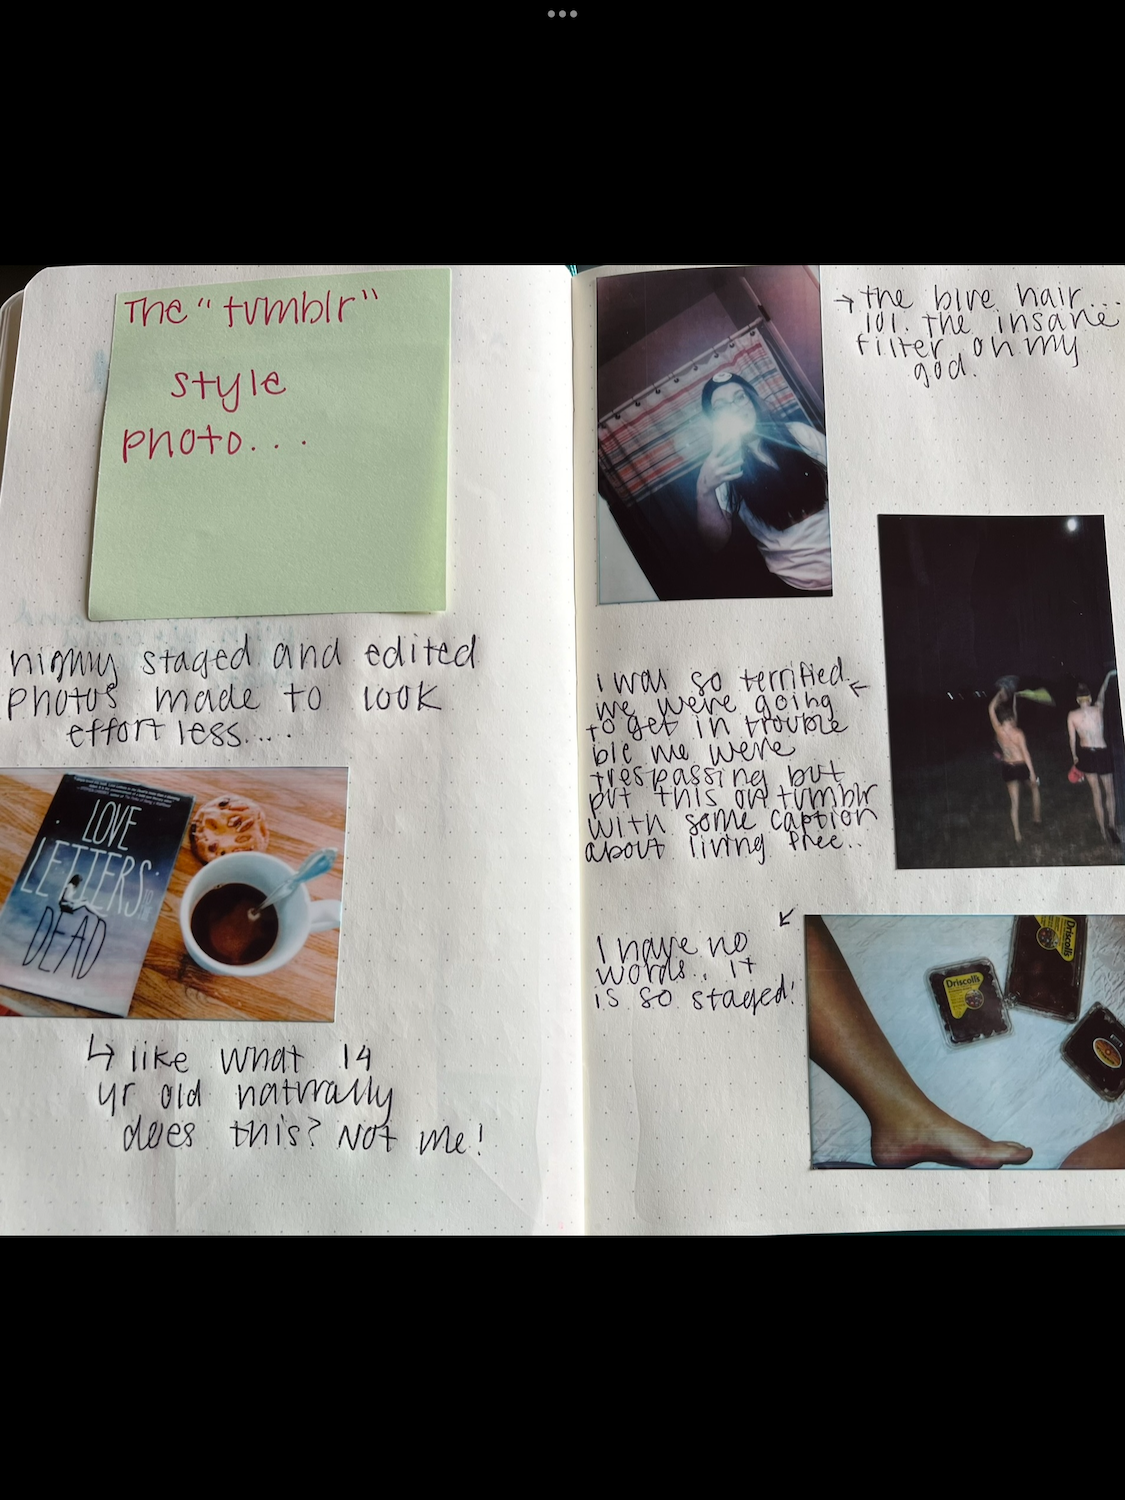 The "tumblr"
style
photo...
highly staged and edited
photos made to look
effortless....
LOVE
LETTERS
TO THE
DEAD
↳ like what 14
yr old naturally
does this? Not me!
→ the blue hair...
lol. the insane
filter oh my
god.
I was so terrified
we were going
to get in trouble
b/c we were
trespassing but
put this on tumblr
with some caption
about living free..
I have no
words.. it
is so staged!
Driscoll's
Driscoll's